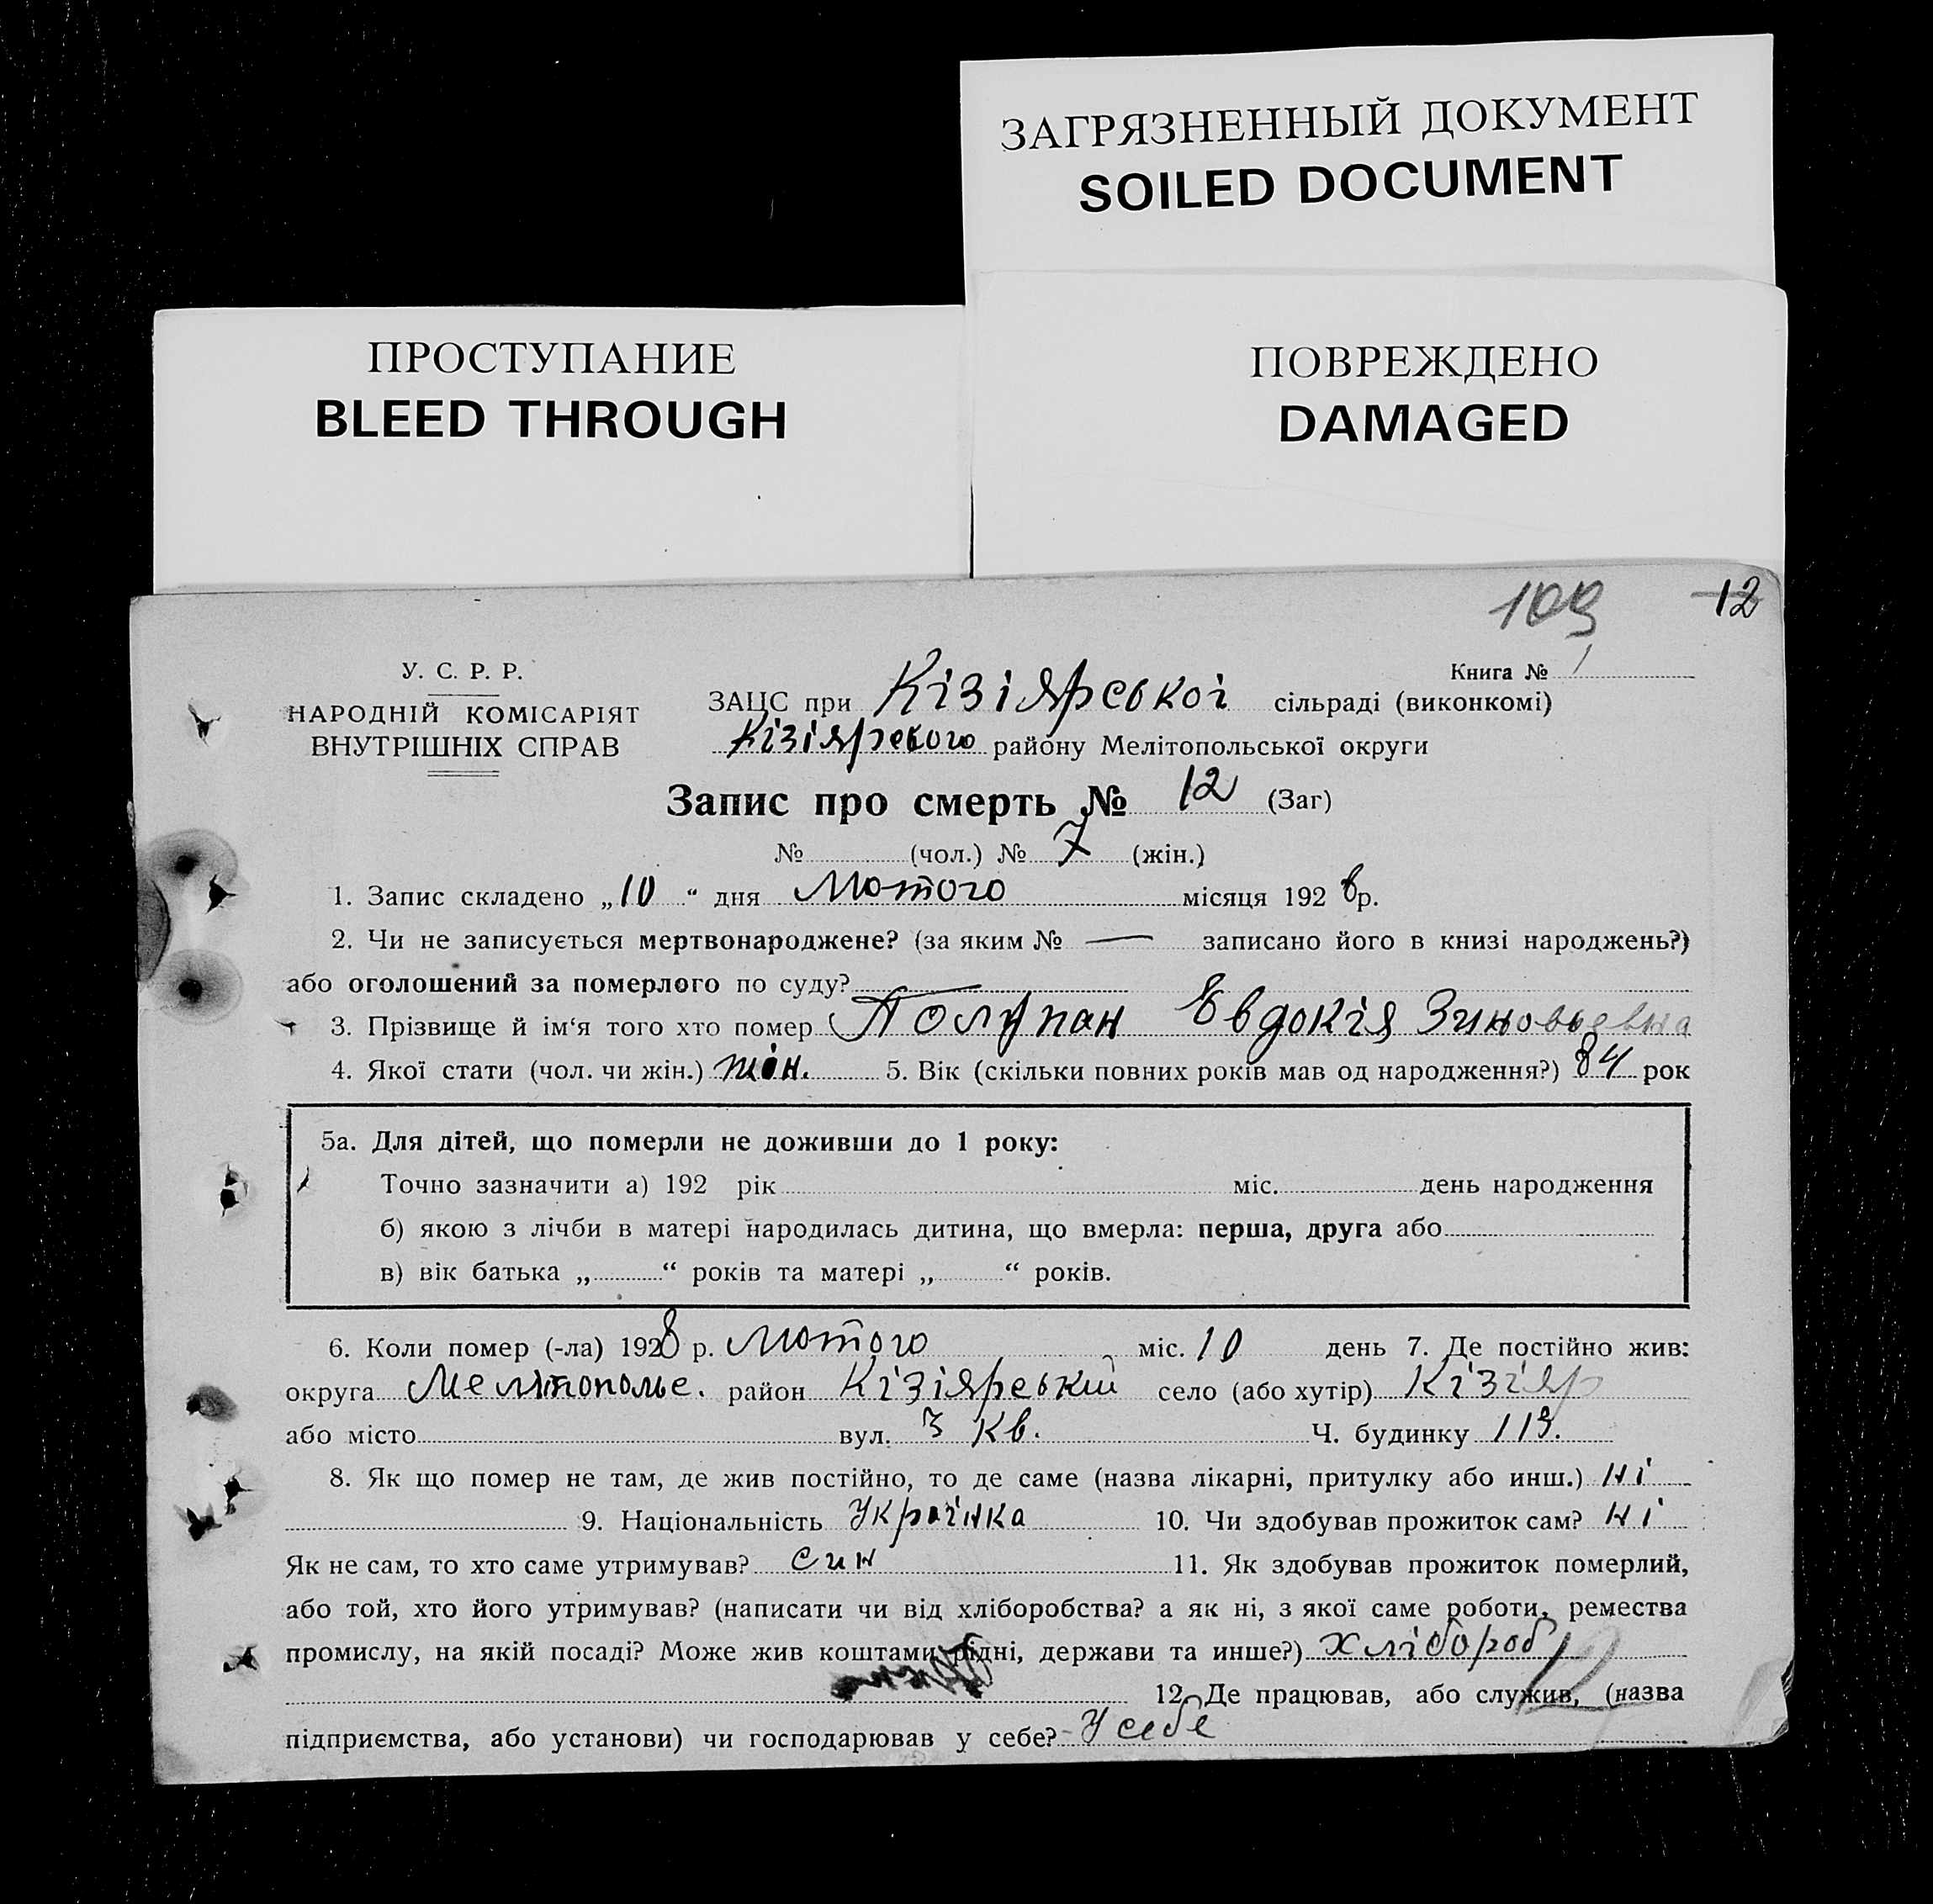 ЗАГРЯЗНЕННЫЙ ДОКУМЕНТ
SOILED DOCUMENT
ПРОСТУПАНИЕ
BLEED THROUGH
ПОВРЕЖДЕНО
DAMAGED
12
У. С. Р. Р.
НАРОДНІЙ КОМІСАРІЯТ
ВНУТРІШНІХ СПРАВ
Книга № 1
ЗАЦС при Кізіярської сільраді (виконкомі)
Кізіярского району Мелітопольської округи
Запис про смерть № 12 (Заг)
№ (чол.) № 7 (жін.)
1. Запис складено „10“ дня Лютого місяця 1928 р.
2. Чи не записується мертвонароджене? (за яким № — записано його в книзі народжень?)
або оголошений за померлого по суду? —
3. Прізвище й ім‘я того хто помер Полупан Евдокія Зиновьевна
4. Якої стати (чол. чи жін.) жін. 5. Вік (скільки повних років мав од народження?) 84 рок
5а. Для дітей, що померли не доживши до 1 року:
Точно зазначити а) 192 рік міс. день народження
б) якою з лічби в матері народилась дитина, що вмерла: перша, друга або
в) вік батька „ “ років та матері „ “ років.
6. Коли помер (-ла) 1928 р. Лютого міс. 10 день 7. Де постійно жив:
округа Мелітополье. район Кізіярський село (або хутір) Кізіяр
або місто вул. 3 Кв. Ч. будинку 113.
8. Як що помер не там, де жив постійно, то де саме (назва лікарні, притулку або инш.) Ні
9. Національність Українка 10. Чи здобував прожиток сам? Ні
Як не сам, то хто саме утримував? син 11. Як здобував прожиток померлий,
або той, хто його утримував? (написати чи від хліборобства? а як ні, з якої саме роботи, ремества
промислу, на якій посаді? Може жив коштами рідні, держави та инше?) хлібороб
12. Де працював, або служив, (назва
підприємства, або установи) чи господарював у себе? У себе